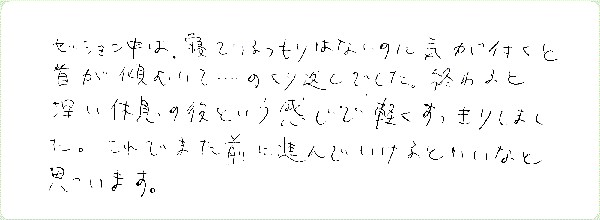 セッション中は、寝ているつもりはないのに気が付くと
首が傾むいて…のくり返しでした。終わると
深い休息の後という感じで軽くすっきりしまし
た。これでまた前に進んでいけるとかいいなと
思っています。